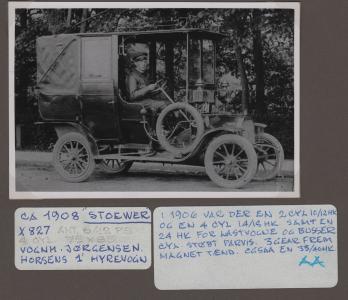 CA 1908 "STOEWER"
X 827
4 CYL.
VOGNM. JØRGENSEN.
HORSENS 1' HYREVOGN
I 1906 VAR DER EN 2 CYL 10/12 HK
OG EN 4 CYL 14/18 HK SAMT EN
24 HK FOR LASTVOGNE OG BUSSER
CYL STØBT PARVIS. 3 GEAR FREM
MAGNET TÆND. OGSAA EN 35/40 HK.